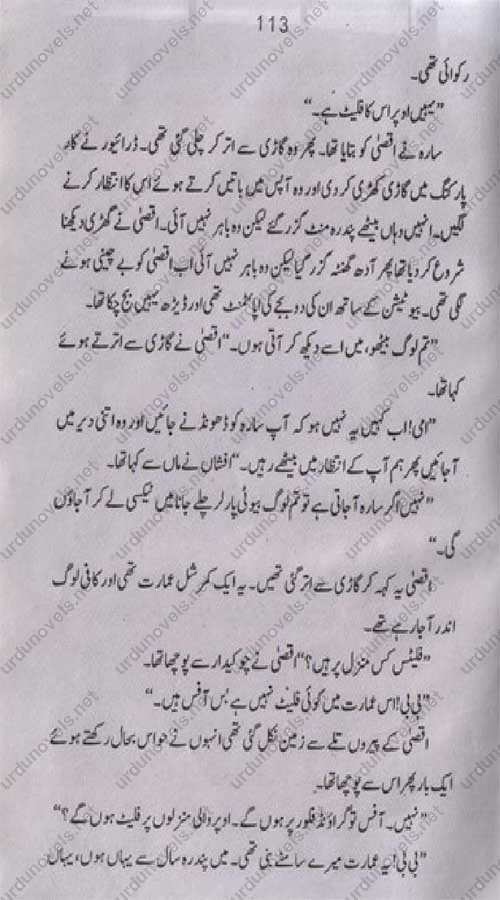 113
رکوائی تھی۔
”یہیں اوپر اس کا فلیٹ ہے۔“
سارہ نے اقصیٰ کو بتایا تھا۔ پھر وہ گاڑی سے اتر کر چلی گئی تھی۔ ڈرائیور نے کار
پارکنگ میں گاڑی کھڑی کر دی اور وہ آپس میں باتیں کرتے ہوئے اس کا انتظار کرنے
لگیں۔ انہیں وہاں بیٹھے پندرہ منٹ گزر گئے لیکن وہ باہر نہیں آئی۔ اقصیٰ نے گھڑی دیکھنا
شروع کر دیا تھا پھر آدھ گھنٹہ گزر گیا لیکن وہ باہر نہیں آئی اب اقصیٰ کو بے چینی ہونے
لگی تھی۔ بیوٹیشن کے ساتھ ان کی دو بجے کی اپائنٹمنٹ تھی اور ڈیڑھ یہیں بج چکا تھا۔
”تم لوگ بیٹھو، میں اسے دیکھ کر آتی ہوں۔“ اقصیٰ نے گاڑی سے اترتے ہوئے
کہا تھا۔
”امی! اب کہیں یہ نہیں ہو کہ آپ سارہ کو ڈھونڈنے جائیں اور وہ اتنی دیر میں
آ جائیں پھر ہم آپ کے انتظار میں بیٹھے رہیں۔“ افشاں نے ماں سے کہا تھا۔
”نہیں اگر سارہ آ جاتی ہے تو تم لوگ بیوٹی پارلر چلے جانا میں ٹیکسی لے کر آ جاؤں
گی۔“
اقصیٰ یہ کہہ کر گاڑی سے اتر گئی تھیں۔ یہ ایک کمرشل عمارت تھی اور کافی لوگ
اندر آ جا رہے تھے۔
”فلیٹس کس منزل پر ہیں؟“ اقصیٰ نے چوکیدار سے پوچھا تھا۔
”بی بی! اس عمارت میں کوئی فلیٹ نہیں ہے بس آفس ہیں۔“
اقصیٰ کے پیروں تلے سے زمین نکل گئی تھی انہوں نے حواس بحال رکھتے ہوئے
ایک بار پھر اس سے پوچھا تھا۔
”نہیں۔ آفس تو گراؤنڈ فلور پر ہوں گے۔ اوپر والی منزلوں پر فلیٹ ہوں گے؟“
”بی بی! یہ عمارت میرے سامنے بنی تھی۔ میں پندرہ سال سے یہاں ہوں، یہاں
urdunovels.net